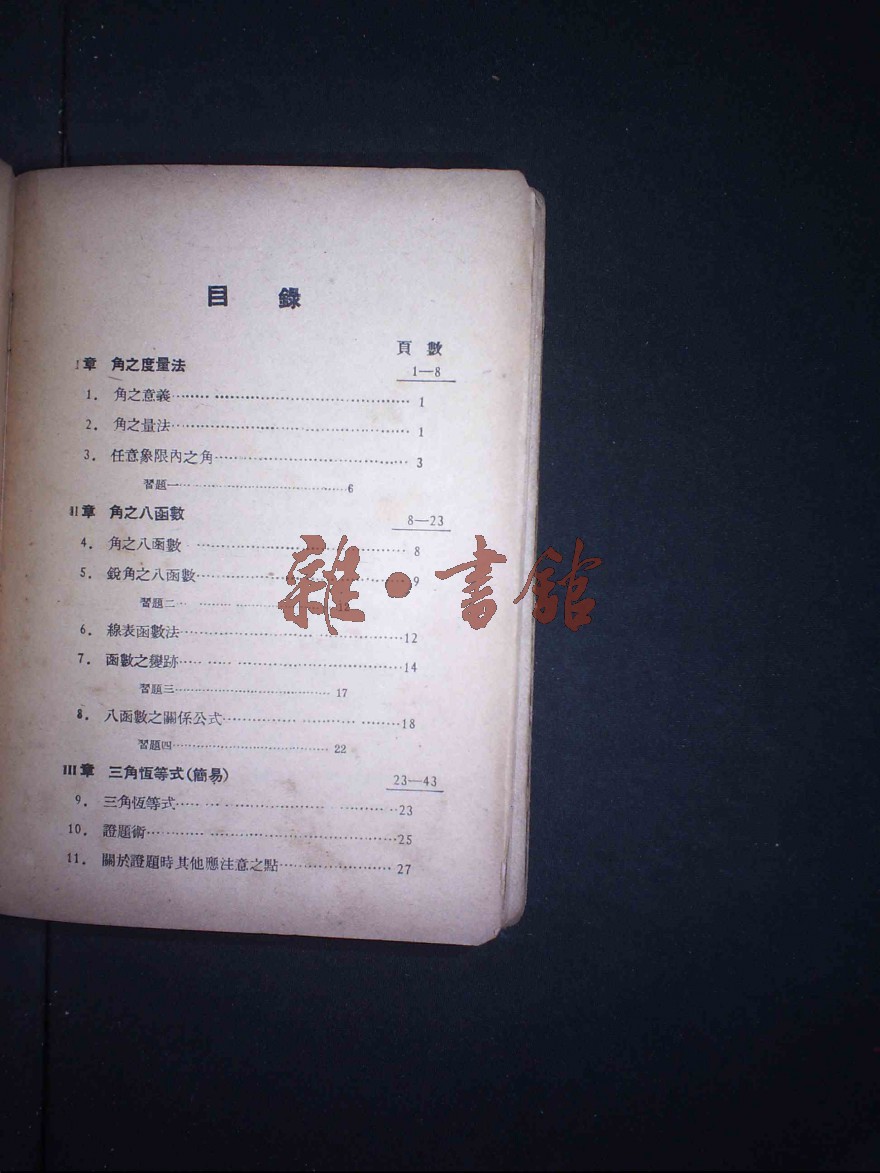 目 錄
頁 數
I章 角之度量法 1—8
1. 角之意義 1
2. 角之量法 1
3. 任意象限內之角 3
習題一 6
II章 角之八函數 8—23
4. 角之八函數 8
5. 銳角之八函數 9
習題二 12
雜·書館
6. 線表函數法 12
7. 函數之變跡 14
習題三 17
8. 八函數之關係公式 18
習題四 22
III章 三角恆等式(簡易) 23—43
9. 三角恆等式 23
10. 證題術 25
11. 關於證題時其他應注意之點 27